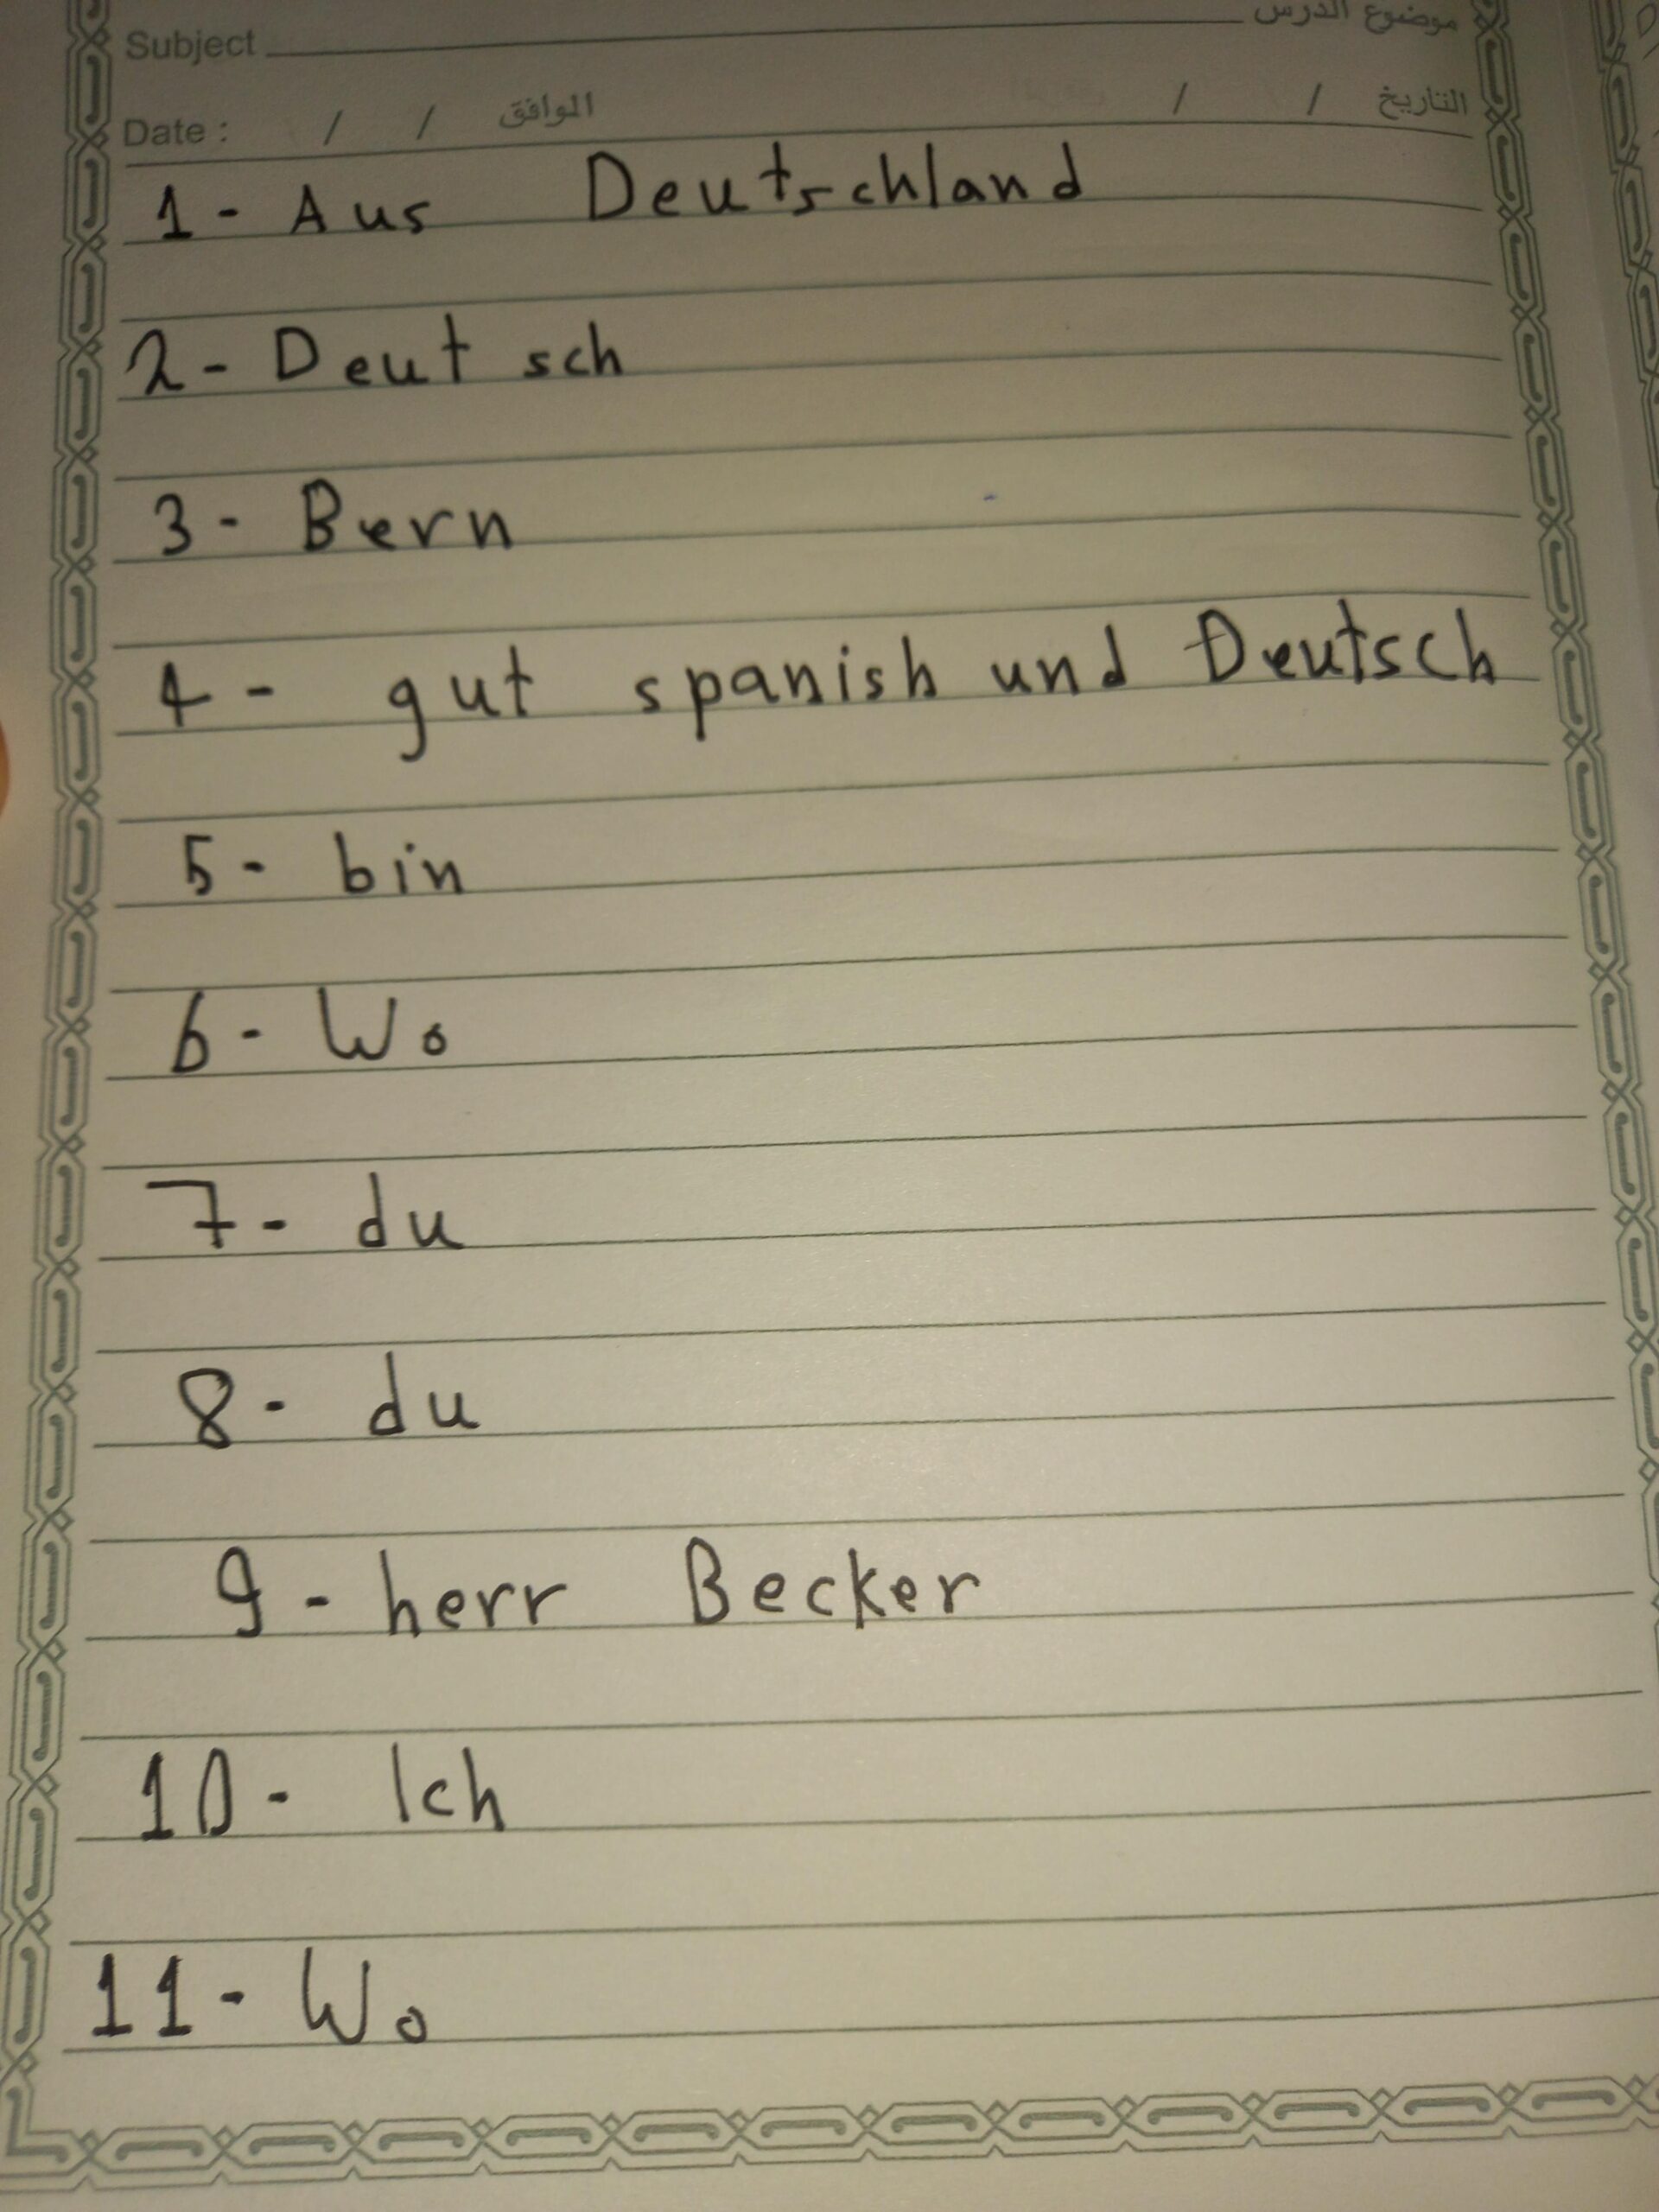 Subject موضوع الدرس
Date : / / الموافق / / التاريخ
1 - Aus Deutschland
2 - Deutsch
3 - Bern
4 - gut spanish und Deutsch
5 - bin
6 - Wo
7 - du
8 - du
9 - herr Becker
10 - Ich
11 - Wo